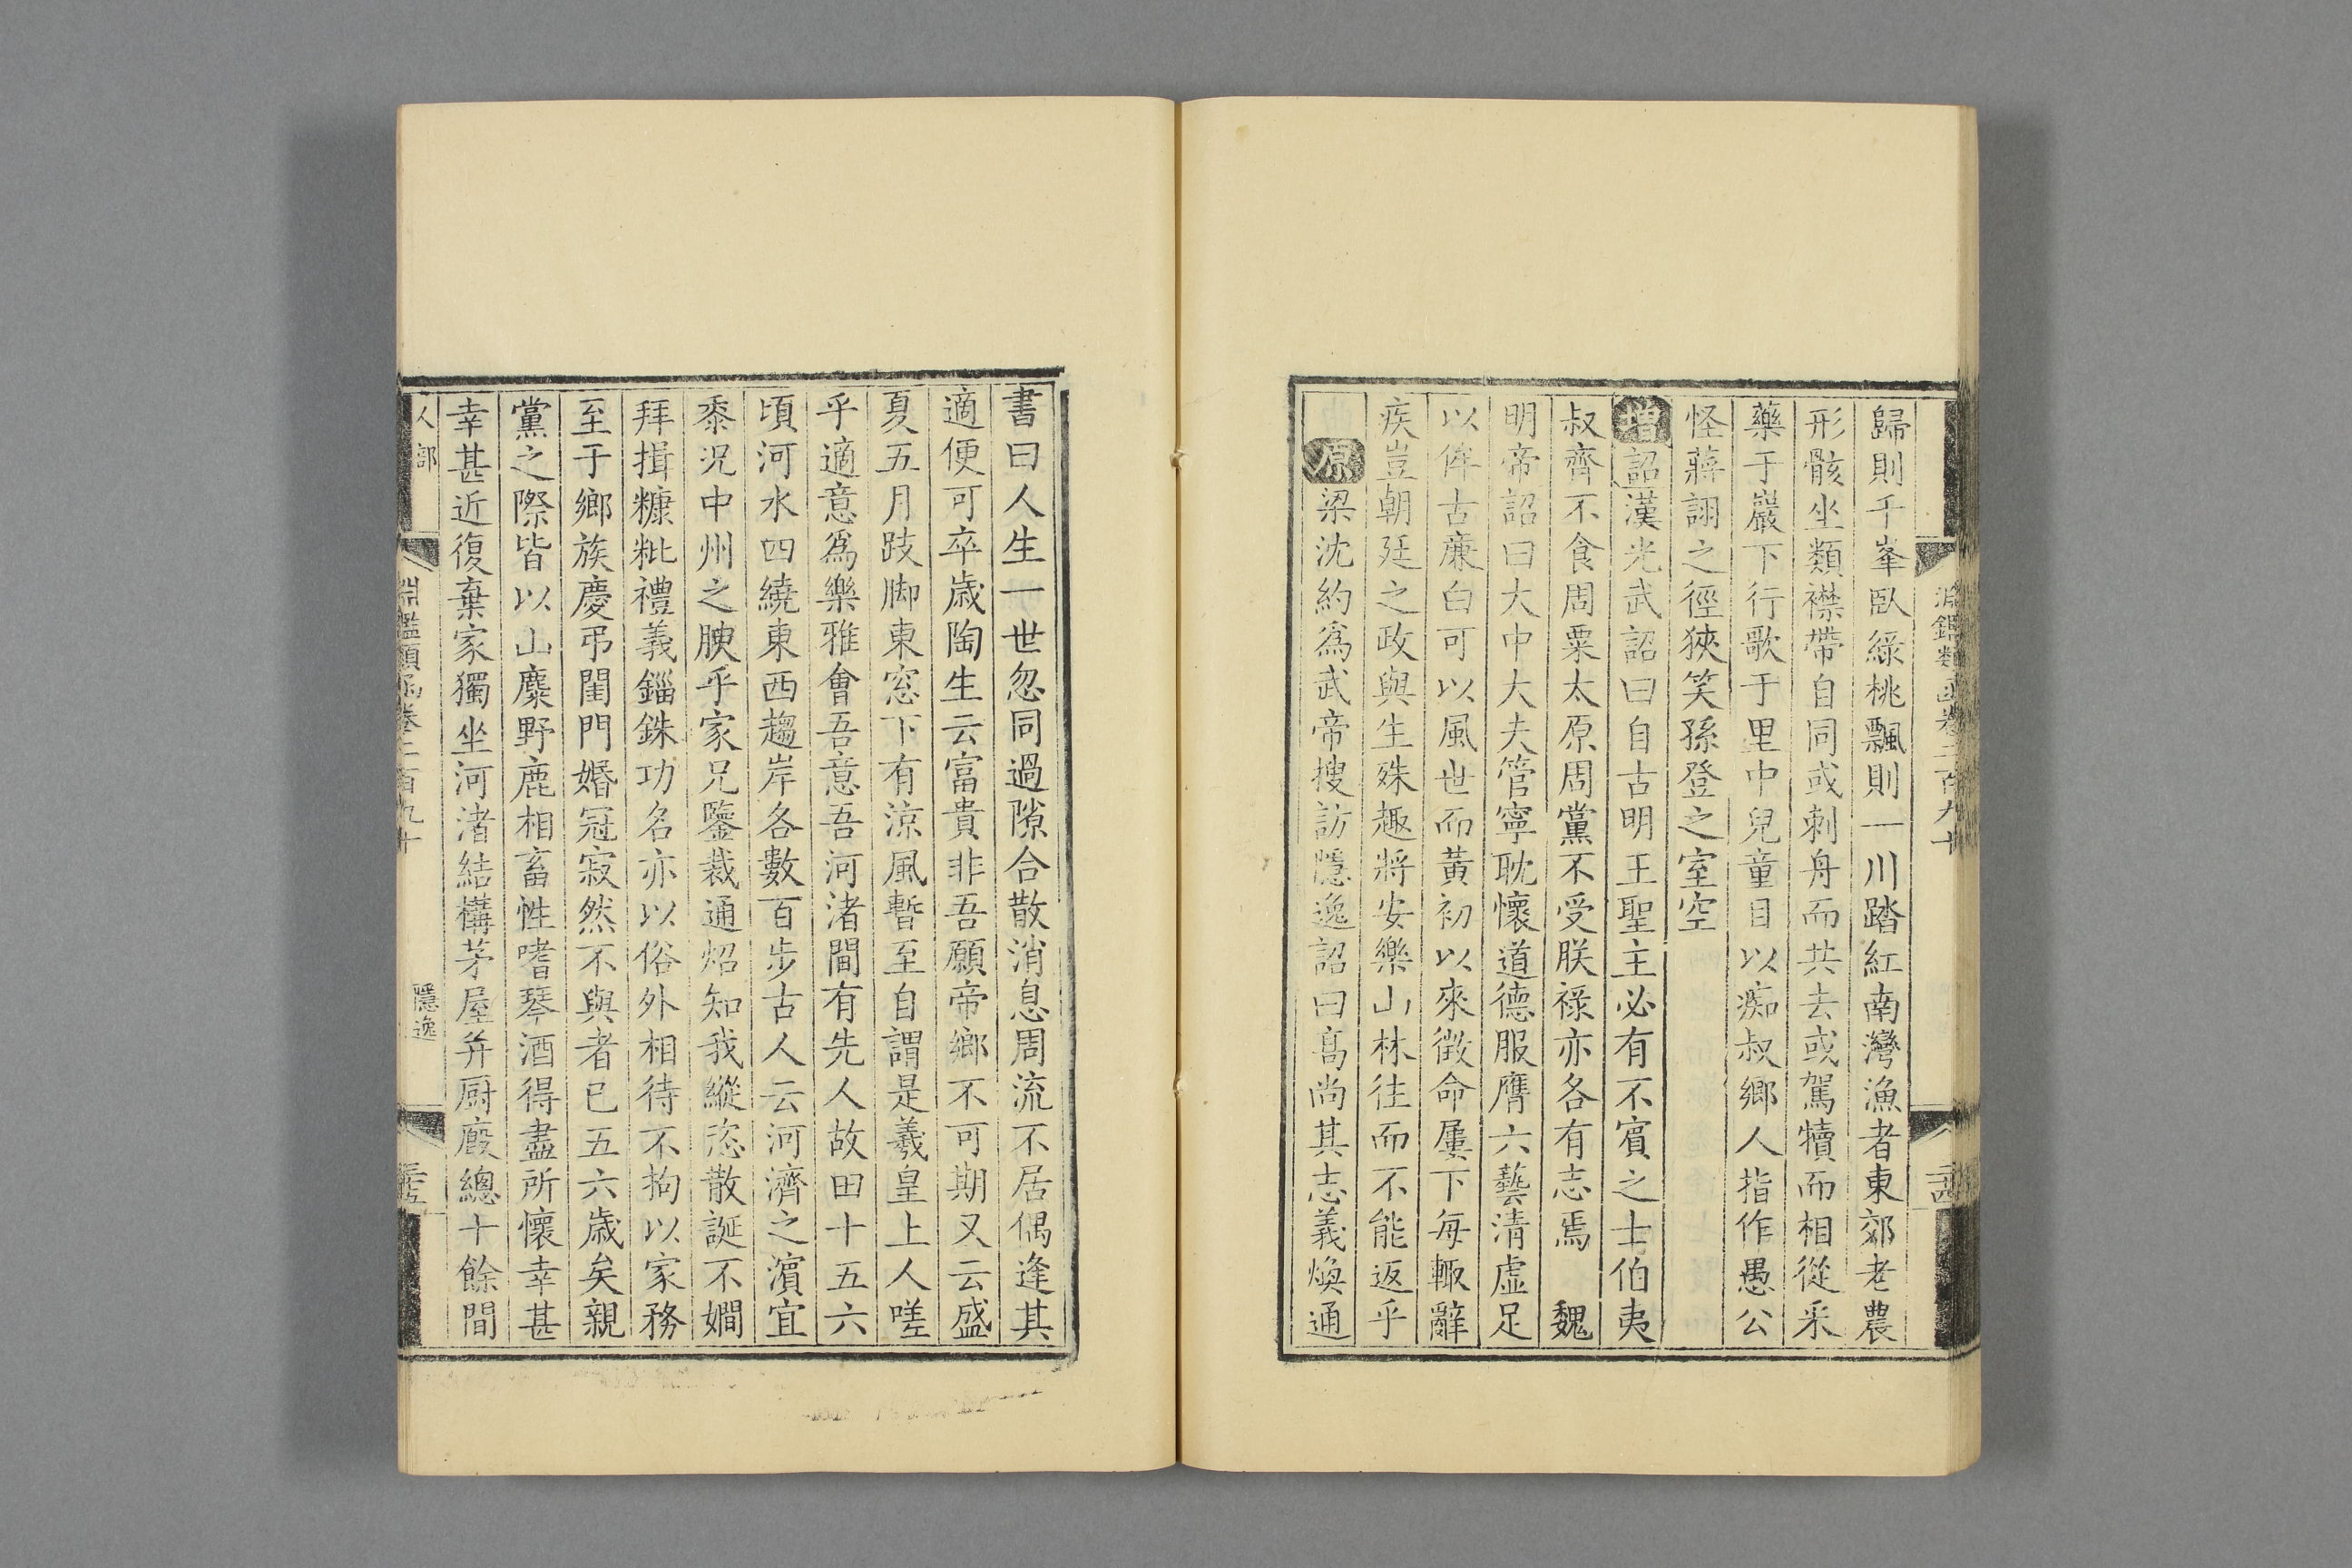 淵鑑類函卷二百九十
歸則千峯臥綠桃飄則一川踏紅南灣漁者東郊老農
形骸坐類襟帶自同或刺舟而共去或駕犢而相從采
藥于巖下行歌于里中兒童目以痴叔鄉人指作愚公
怪蔣詡之徑狹笑孫登之室空
增詔漢光武詔曰自古明王聖主必有不賓之士伯夷
叔齊不食周粟太原周黨不受朕祿亦各有志焉　魏
明帝詔曰大中大夫管寧耽懷道德服膺六藝清虛足
以侔古廉白可以風世而黃初以來徵命屢下每輒辭
疾豈朝廷之政與生殊趣將安樂山林往而不能返乎
原梁沈約為武帝搜訪隱逸詔曰高尚其志義煥通
書曰人生一世忽同過隙合散消息周流不居偶逢其
適便可卒歲陶生云富貴非吾願帝鄉不可期又云盛
夏五月跂脚東窓下有涼風暫至自謂是羲皇上人嗟
乎適意為樂雅會吾意吾河渚間有先人故田十五六
頃河水四繞東西趨岸各數百步古人云河濟之濵宜
黍況中州之腴乎家兄鑒裁通炤知我縱恣散誕不嫺
拜揖糠粃禮義錙銖功名亦以俗外相待不拘以家務
至于鄉族慶弔閨門婚冠寂然不與者已五六歲矣親
黨之際皆以山麋野鹿相畜性嗜琴酒得盡所懷幸甚
幸甚近復棄家獨坐河渚結構茅屋并厨廄總十餘間
人部
淵鑑類函卷二百九十
隱逸